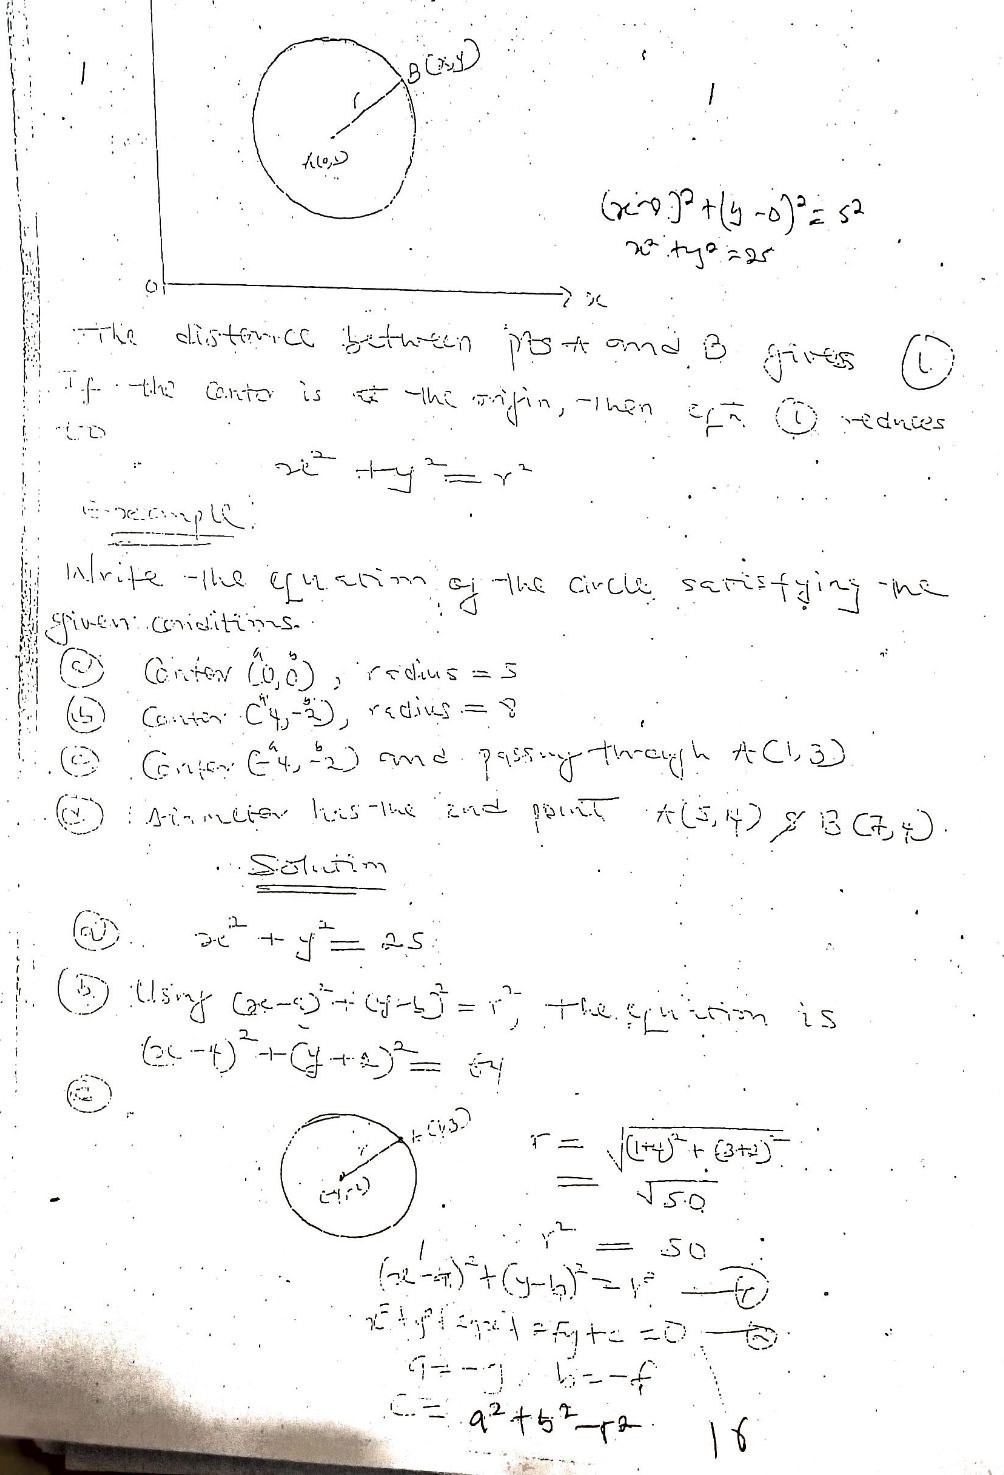 B(x,y)
r
(x-0)²+(y-0)²=5²
x²+y²=25
0
x
The distance between pts A and B gives (1)
If the center is at the origin, then eqn (1) reduces
to
x² + y² = r²
Example:
Write the equation of the circle satisfying the
given conditions.
a b
(a) Center (0,0), radius = 5
(b) Center (4,-2), radius = 8
(c) Center (-4,-2) and passing through A(1,3)
(d) Diameter has the end point A(5,4) & B(7,4).
Solution
(a) x² + y² = 25
(b) Using (x-a)²+(y-b)² = r², the equation is
(x-4)²+(y+2)² = 64
(c)
A(1,3)
r
(-4,-2)
r = √(1+4)²+(3+2)²
= √50
r² = 50
(x-a)²+(y-b)²=r² — (1)
x²+y²+2gx+2fy+c=0 — (2)
a=-g, b=-f
c= a²+b²-r²
16